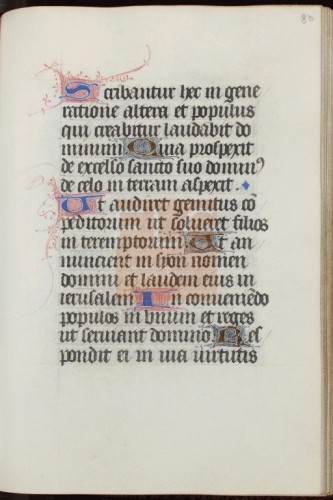 80
Scribantur hec in gene
ratione altera et populus
qui creabitur laudabit do
minum Quia prospexit
de excelso sancto suo dominꝰ
de celo in terram aspexit.
Ut audiret gemitus cō
peditorum ut solueret filios
interemptorum Ut an
nuncient in syon nomen
domini et laudem eius in
ierusalem In conueniēdo
populos in vnum et reges
ut seruiant domino Res
pondit ei in uia uirtutis